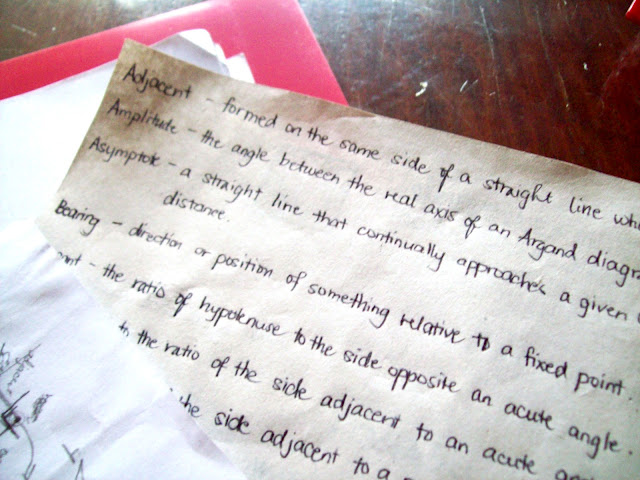 Adjacent - formed on the same side of a straight line
Amplitude - the angle between the real axis of an Argand
Asymptote - a straight line that continually approaches a given
distance.
Bearing - direction or position of something relative to a fixed point.
- the ratio of hypotenuse to the side opposite an acute angle.
the ratio of the side adjacent to an acute
the side adjacent to a